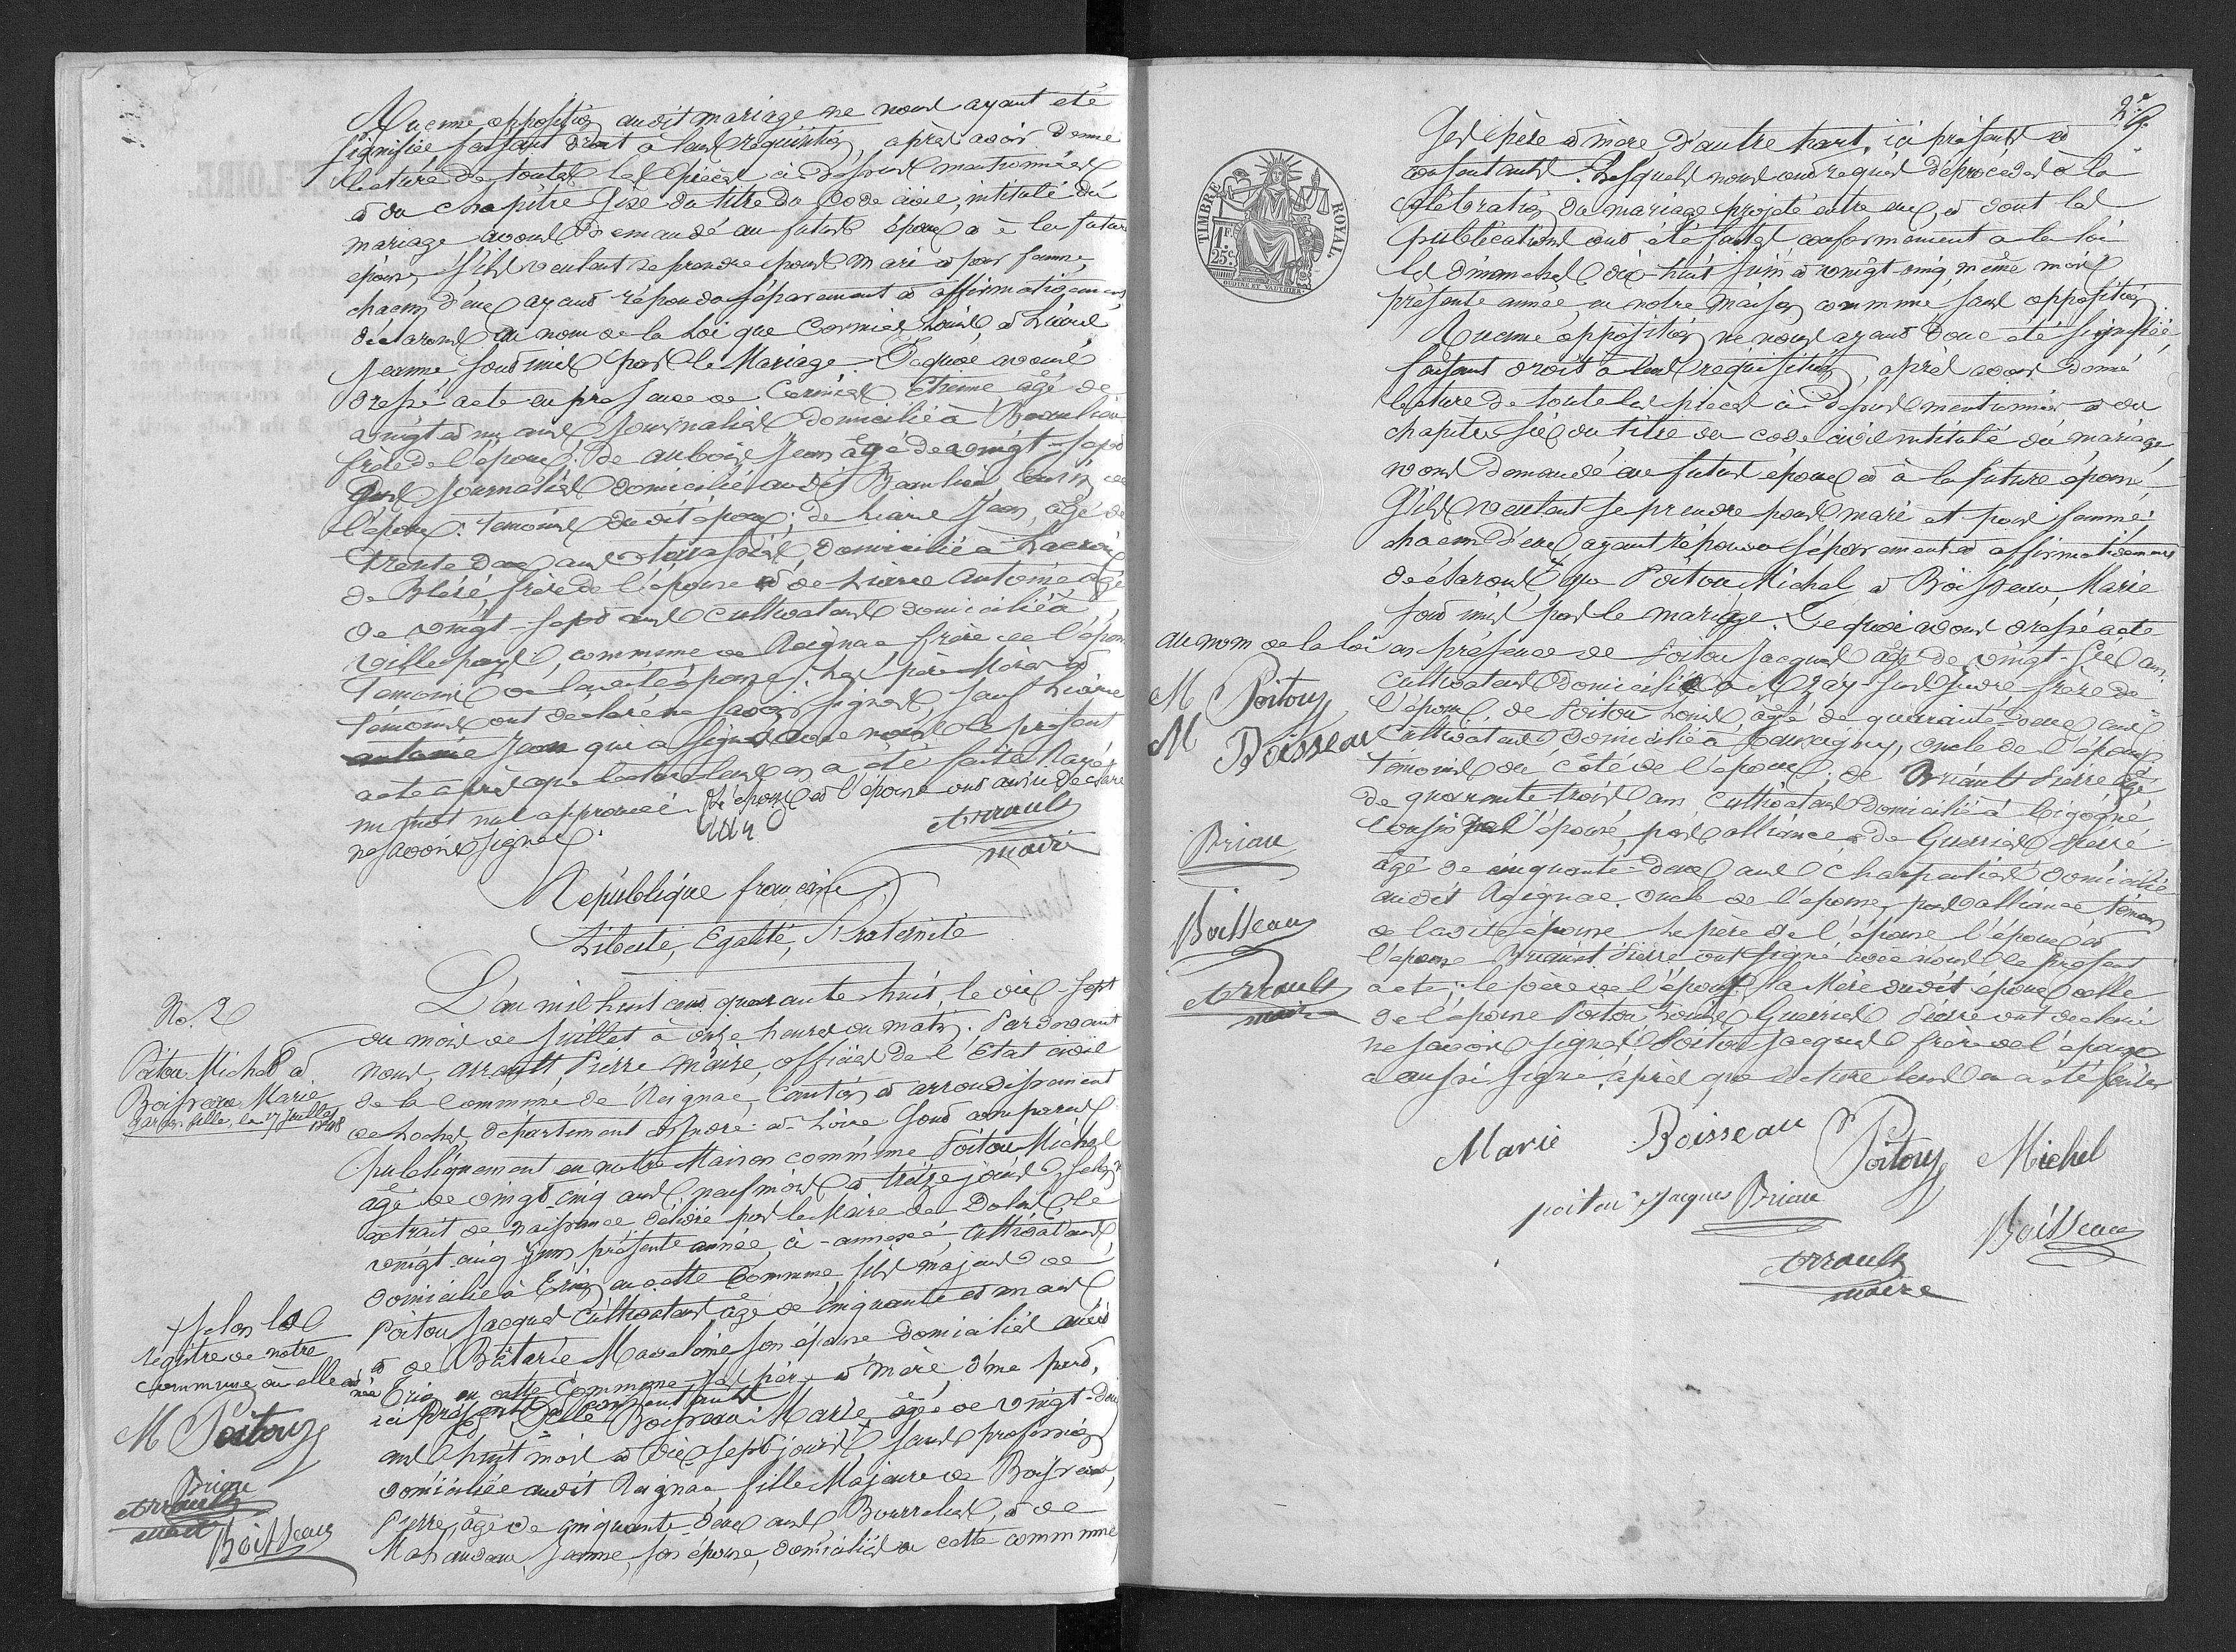 Aucune opposition audit mariage ne nous ayant eté
signifiée faisant droit à leur réquisition, après avoir donné
lecture de toutes les pièces ci-dessus mentionnées
et du chapitre six du titre du Code civil, intitulé du
mariage avons demandé au futur époux et à la future
épouse, s'ils veulent se prendre pour mari et pour femme,
chacun d'eux ayant répondu séparement et affirmativement
déclarons au nom de la Loi que Cormier Louis et Liaul
Jeanne sont unis par le Mariage. De quoi avons
dressé acte en présence de Cormier Etienne âgé de
vingt et un ans Journalier domicilié à Beaulieu
frère de l'époux; De Auboix Jean âgé de vingt-sept
ans Journalier domicilié audit Beaulieu cousin de
l'époux: témoins dudit époux; de Jean, âgé de
trente deux ans domicilié à Lacroix
de Bléré, frère de l'épouse et de Antoine âgé
de vingt-sept ans cultivateur domicilié à
commune de Reignac frère de l'épouse
témoins de la dite épouse. Les père Mère et
témoins ont déclaré ne savoir signer, sauf
antoine Jean qui a signé avec nous le présent
acte après que lecture leur en a été faite Rayé
un mot nul approuvé. L'époux et l'épouse ont aussi déclaré
ne savoir signer.
Arrault
maire
République française
Liberté, Egalité, Fraternité
No. 2
Poitou Michel et
Boisseau Marie
garçon fille, le 17 Juillet
1848
L'an mil huit cent quarante huit, le dix-sept
du mois de Juillet à onze heures du matin. Pardevant
nous, Arrault Pierre Maire, officier de l'Etat civil
de la Commune de Reignac, Canton et arrondissement
de Loches, département d'Indre-et-Loire sont comparus
publiquement en notre Maison commune Poitou Michel
âgé de vingt-cinq ans neuf mois et treize jours, selon
extrait de naissance délivré par le Maire de Dolus, le
vingt-cinq Juin présente année, ci-annexé, cultivateur,
domicilié à Erian en cette Commune, fils majeur de
Poitou Jacques Cultivateur âgé de cinquante et un ans
et de Madeleine son épouse domiciliés audit
Erian en cette Commune, ses père et mère, d'une part,
ici présents et consentants
Et Delle Boisseau Marie, âgée de vingt-deux
ans huit mois et dix-sept jours, sans profession
domiciliée audit Reignac fille Majeure de Boisseau
Pierre, âgé de cinquante-deux ans Bourrelier, et de
Jeanne, son épouse, domiciliés en cette commune
+ selon le
registre de notre
commune où elle est
née
M Poitou
Briau
Arrault
maire
Boisseau
2e
Ses père et mère d'autre part, ici présents et
consentants. Lesquels nous ont requis de procéder à la
célébration du mariage projeté entre eux, et dont les
publications ont été faites conformément à la loi
les dimanches dix-huit Juin et vingt-cinq, même mois
présente année, en notre maison commune sans opposition.
Aucune opposition ne nous ayant donc été signifiée,
faisant droit à leur réquisition, après avoir donné
lecture de toute les pièces ci-dessus mentionnées et du
chapitre six du titre du code civil intitulé du mariage
avons demandé au futur époux et à la future épouse
s'ils veulent se prendre pour mari et pour femme:
chacun d'eux ayant répondu séparement et affirmativement
déclarons que Poitou Michel et Boisseau Marie
sont unis par le mariage. De quoi avons dressé acte
au nom de la loi
M Poitou
M Boisseau
Briau
Boisseau
Arrault
maire
en présence de Poitou Jacques âgé de vingt-six ans
cultivateur domicilié à Azay-sur-Indre frère de
l'époux, de Poitou Louis, âgé de quarante-deux ans
cultivateur, domicilié à oncle de l'époux
témoins du côté de l'époux; de Pierre âgé
de quarante trois ans cultivateur domicilié à Cigogné
cousin de l'épouse, par alliance et de Guerrier Pierre
âgé de cinquante-deux ans Charpentier domicilié
audit Reignac. oncle de l'épouse, par alliance témoins
de la dite épouse. Le père de l'épouse l'époux et
l'épouse Pierre ont signé avec nous le présent
acte; le père de l'époux, la Mère dudit époux celle
de l'épouse Poitou Louis, Guerrier Pierre ont déclaré
ne savoir signer Poitou Jacques frère de l'époux
a aussi signé, après que lecture leur en a été faite
Marie Boisseau Poitou Michel
poitou Jacques Briau
Boisseau
Arrault
maire
TIMBRE ROYAL
1F.
25c.